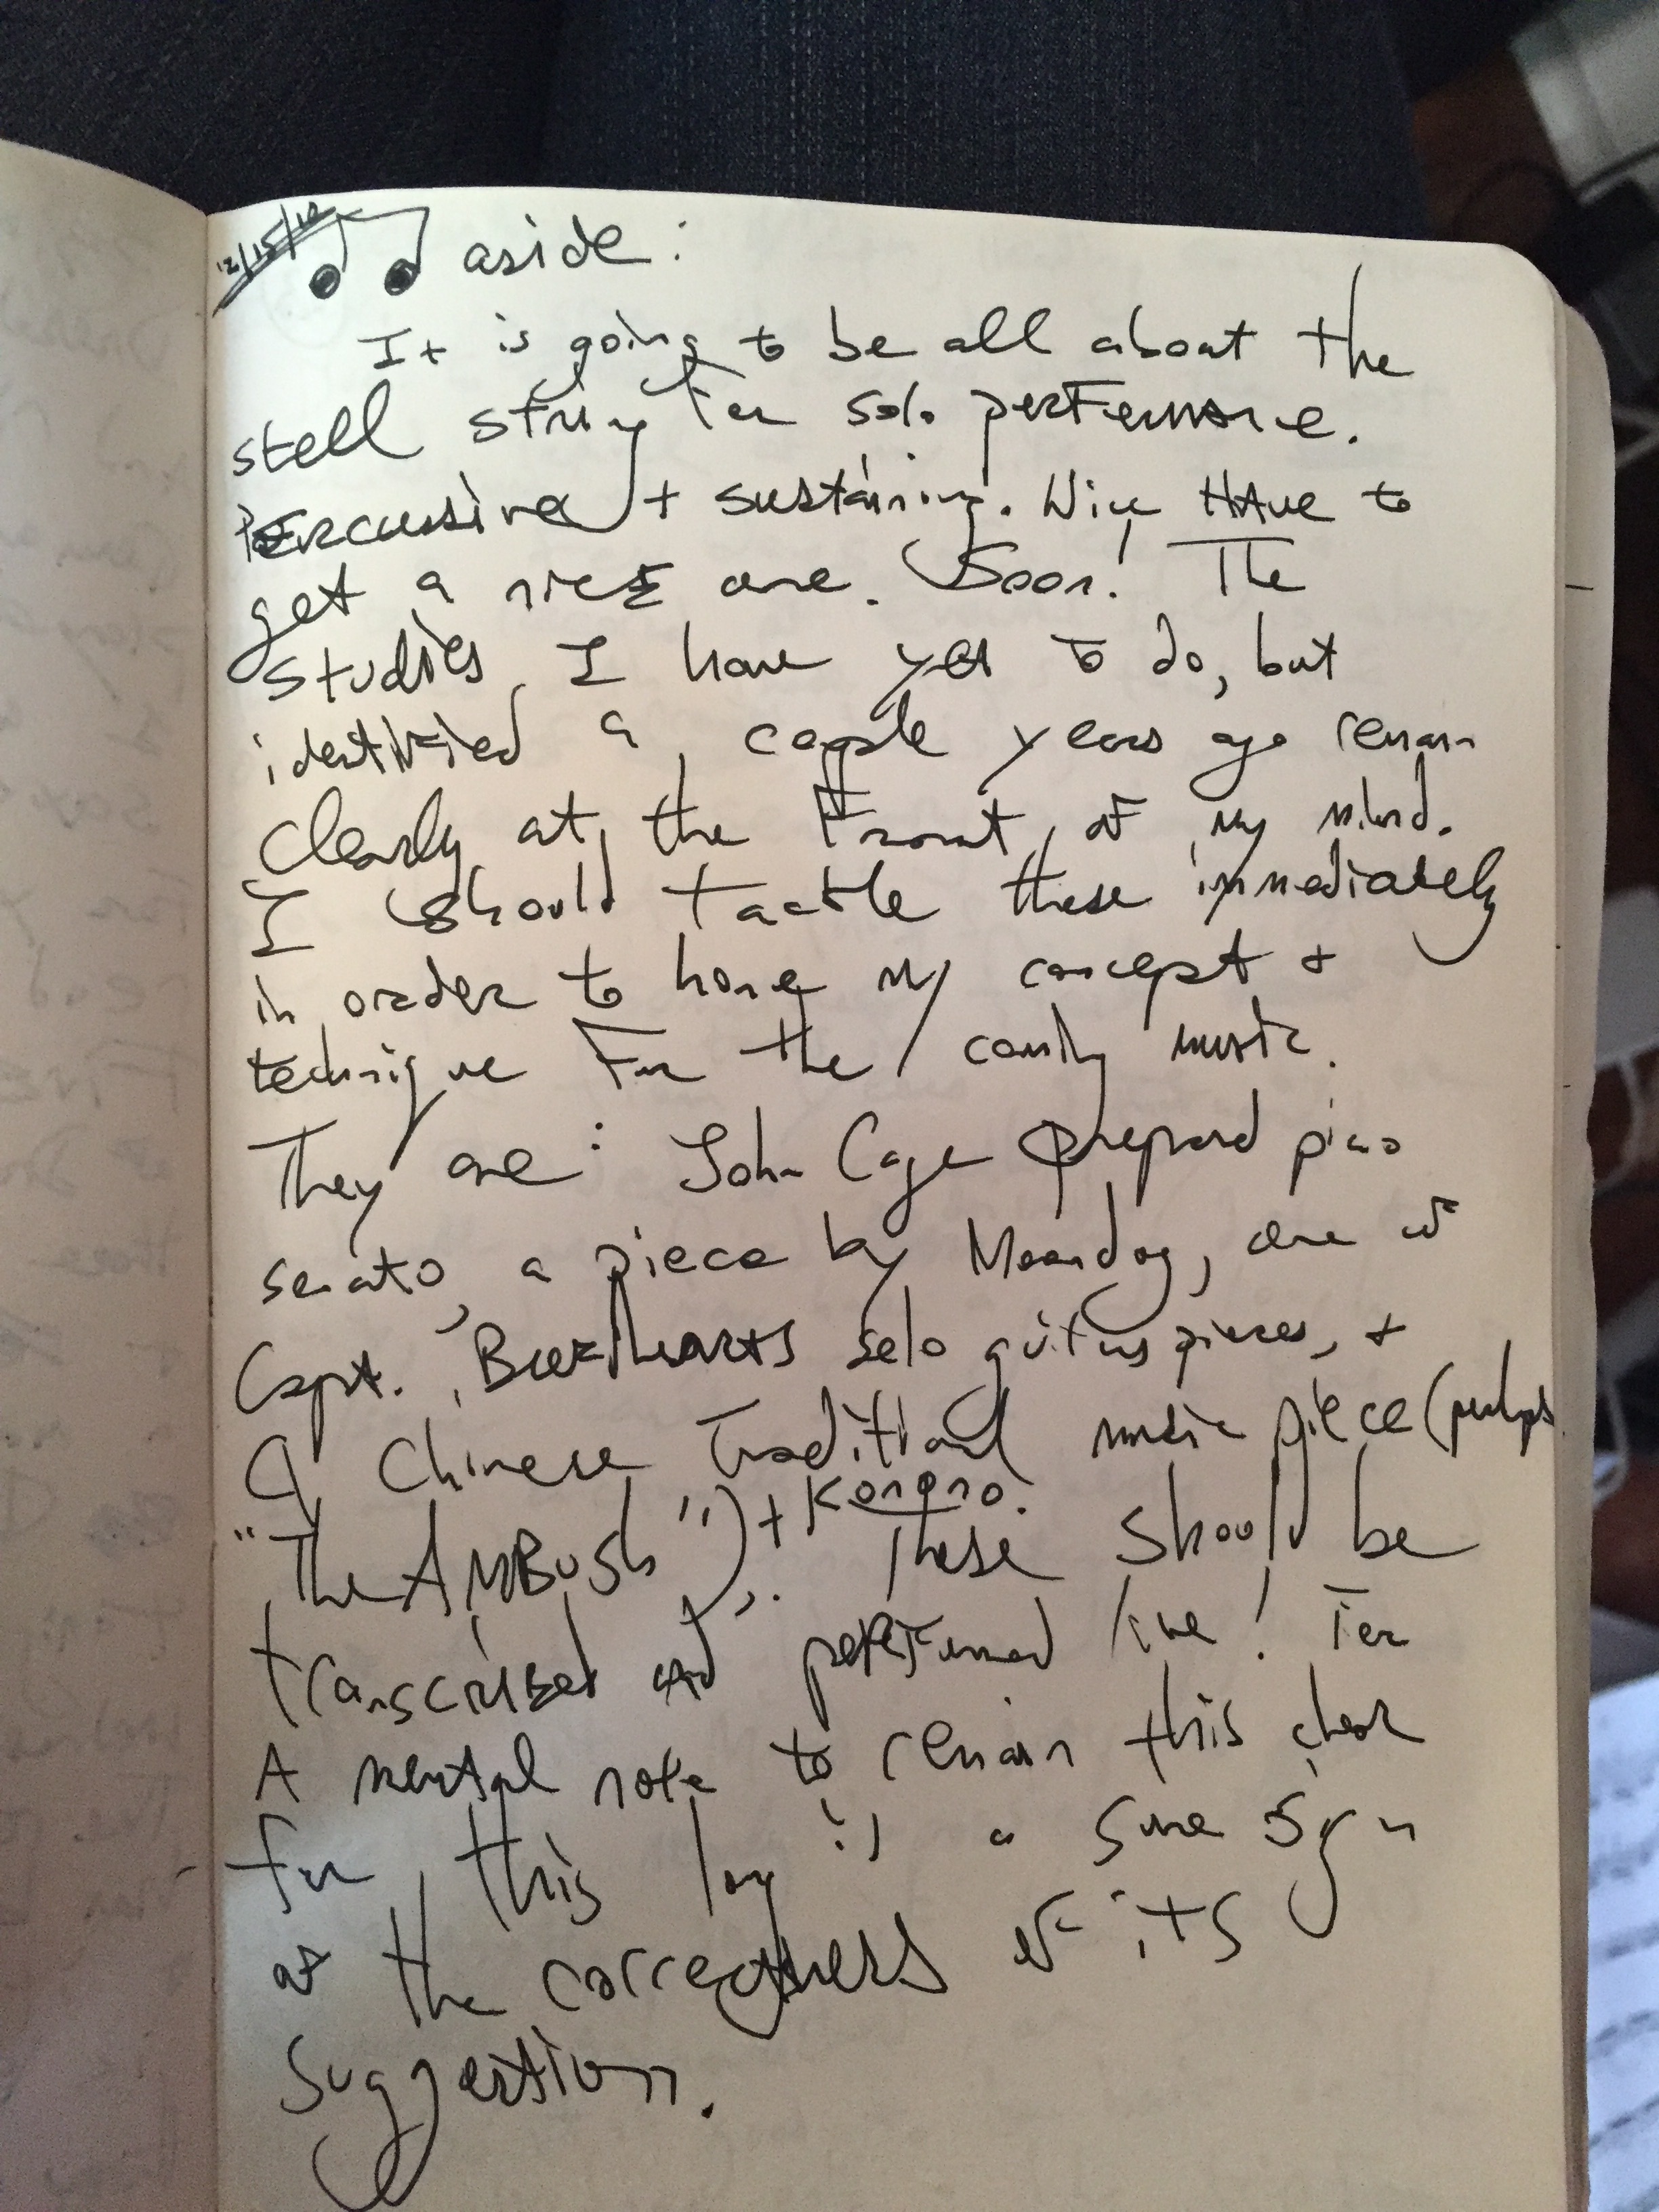 12/15/10 aside:
It is going to be all about the
stell string for solo performance.
Percussive + sustaining. Will HAve to
get a nice one. Soon! The
studies I have yet to do, but
identified a couple years ago remain
clearly at the front of my mind.
I should tackle these immediately
in order to hone my concept +
technique for the coming music.
They are: John Cage prepared piano
sonato, a piece by Moondog, one of
Capt. Beefhearts solo guitar pieces, +
a Chinese traditional music piece (perhaps
"The AMBush") + Konono. These should be
transcribed and performed live! For
A mental note to remain this clear
for this long is a sure sign
of the correctness of its
suggestion.